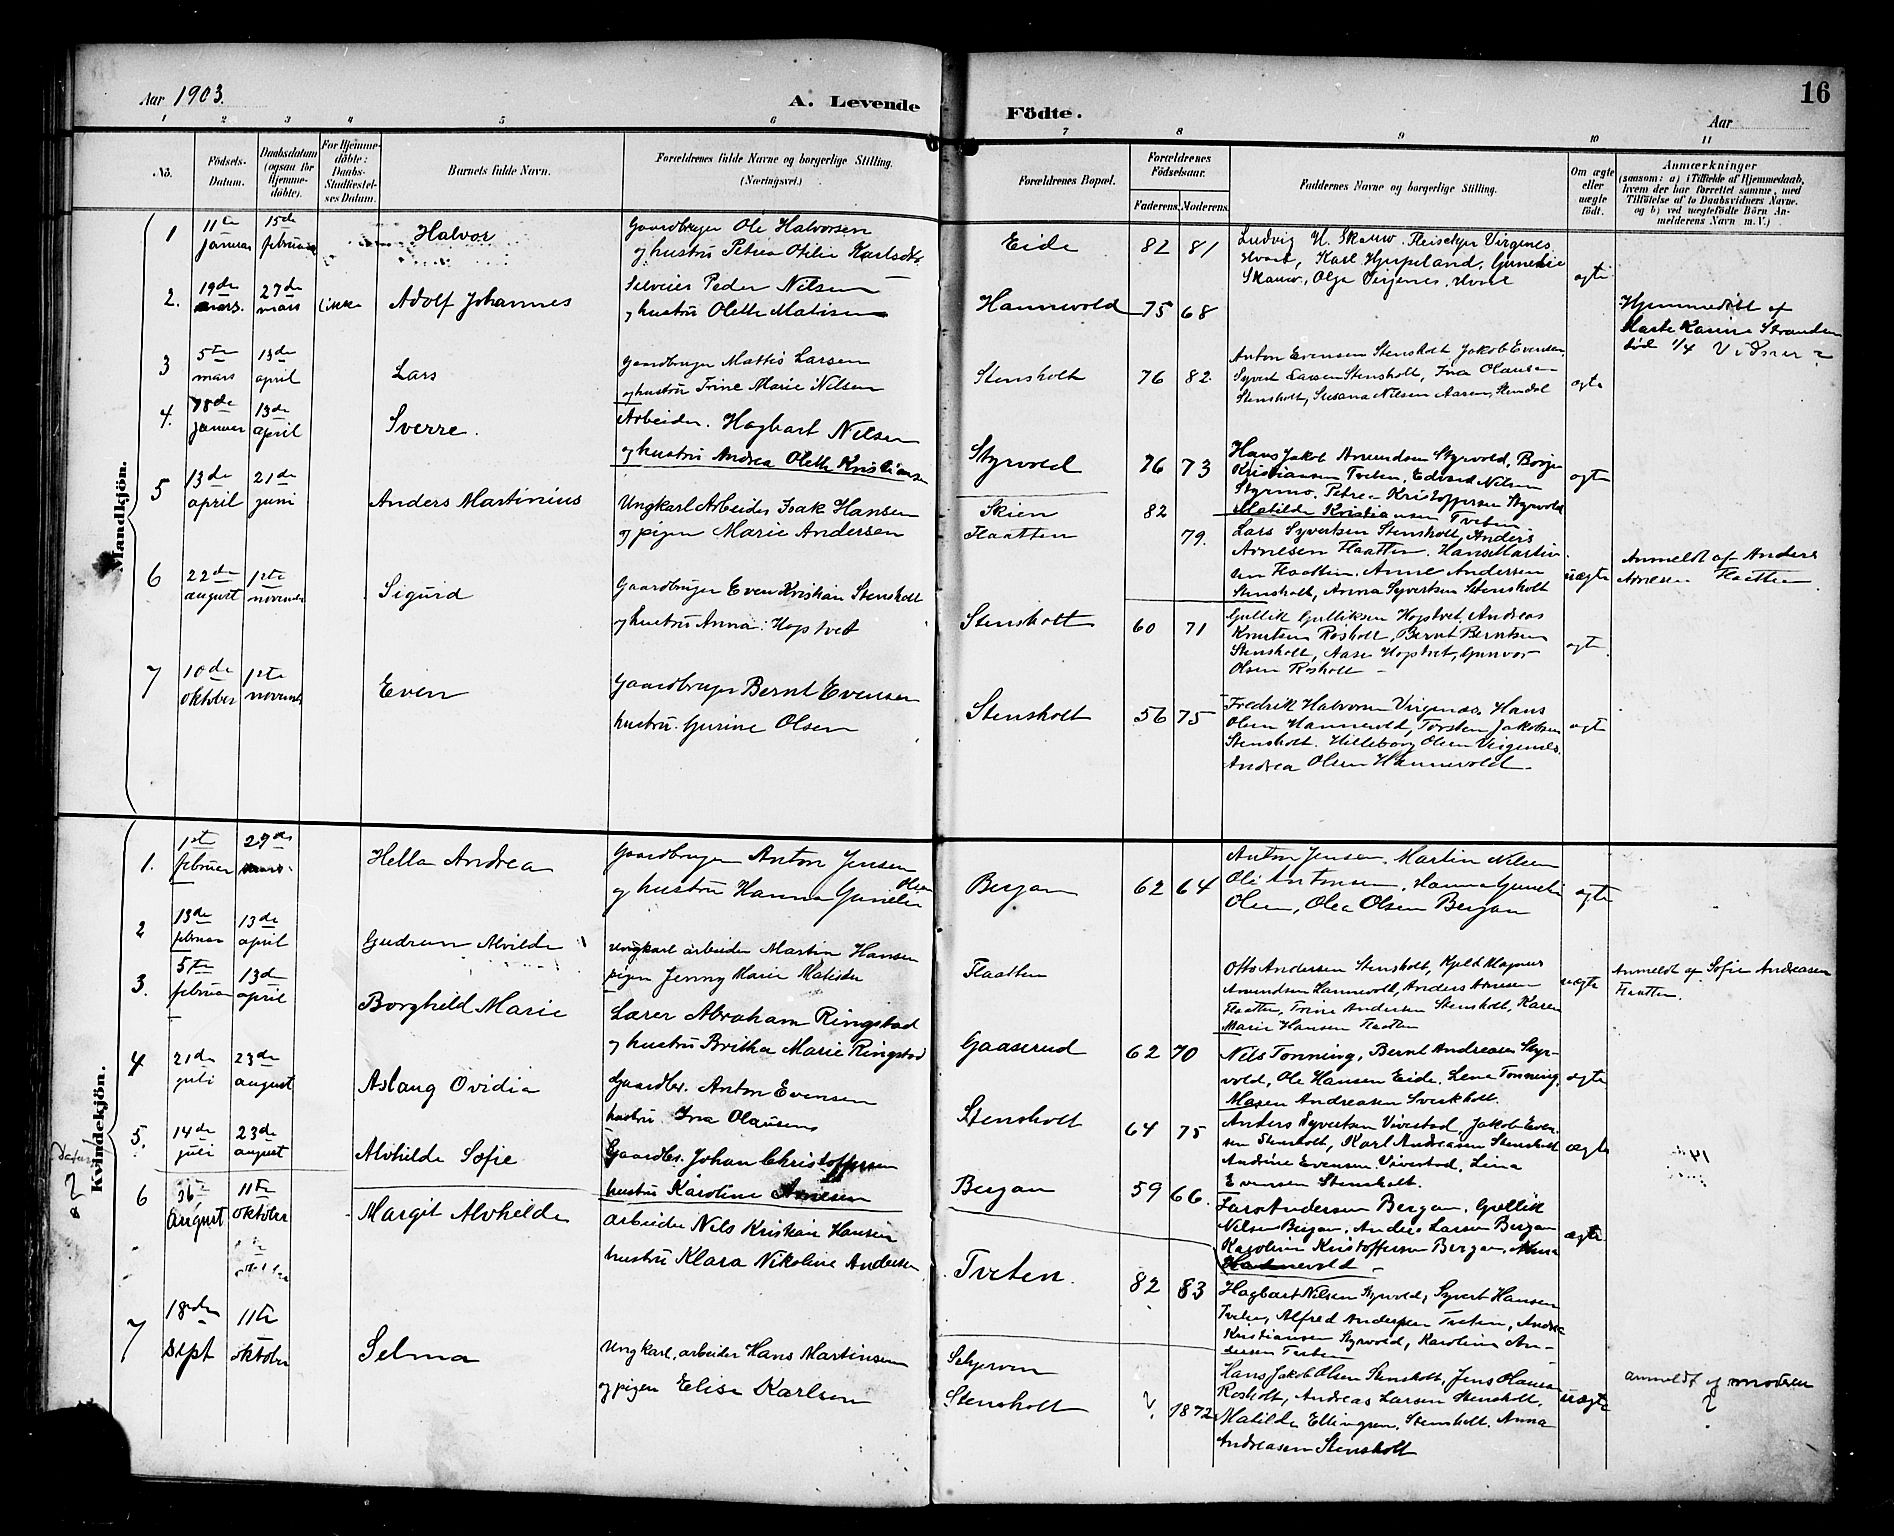 Aar 1903.
A. Levende
Födte.
Aar
16
1 2 3 4 5 6 7 8 9 10 11
No.
Födsels-
Datum.
Daabsdatum
(ogsaa for
Hjemme-
döbte).
For Hjemme-
döbte:
Daabs-
Stadfæstel-
ses Datum.
Barnets fulde Navn.
Forældrenes fulde Navne og borgerlige Stilling.
(Næringsvei.)
Forældrenes Bopæl.
Forældrenes
Födselsaar.
Faderens. Moderens.
Faddernes Navne og borgerlige Stilling.
Om ægte
eller
uægte
födt.
Anmærkninger
(saasom: a) i Tilfælde af Hjemmedaab,
hvem der har forrettet samme, med
Tilföielse af to Daabsvidners Navne.
og b) ved uægtefödte Börn An-
melderens Navn m. V.)
Mandkjön.
1
11te
januar
15de
februar
Halvor
Gaardbruger Ole Halvorsen
og hustru Petrea Otilie Karlsdtr
Eide
82 81
Ludvig H. Skauw. Virgenes
Karl Hjupeland,
Skauw, Olge Virgenes.
ægte
2.
19de
mars.
27de
mars
ikke
Adolf Johannes
Selveier Peder Nilsen
og hustru Olette Matisen
Hannevold
75 68
Hjemmedöbt af
Marte Karine Stranden
död 1/4 Vidner ?
3
5te
mars
13de
april
Lars
Gaardbruger Mattis Larsen
og hustru Trine Marie Nilsen
Stensholt
76 82
Anton Evensen Stensholt Jakob Evensen
Syvert Larsen Stensholt, Ina Olausen
Stensholt, Susana Nilsen Aaren, Stendal
ægte
4.
18de
januar
13de
april
Sverre.
Arbeider. Hagbart Nilsen
og hustru Andrea Olette Kristiansen
Styrvold
76 73
Hans Jakob Amundsen Styrvold, Börge
Kristiansen Tveten, Edvard Nilsen
Styrmo. Petrea Kristoffersen Styrvold
Matilde Kristiansen Tveten
ægte
5
13de
april
21de
juni
Anders Martinius
Ungkarl Arbeider Isak Hansen
og pigen Marie Andersen
Skien
Flaatten
82
79.
Lars Syvertsen Stensholt, Anders
Arnesen Flaatten. Hans Martin-
sen Flaatten. Anne Andersen
Stensholt, Anna Syvertsen Stensholt
uægte
Anmeldt af Anders
Arnesen Flaatten
6
22de
august
1ste
november
Sigurd
Gaardbruger Even Kristian Stensholt
og hustru Anna Hopstvet
Stensholt
60 71
Gullik Gulliksen Hopstvet, Andreas
Knutsen Rosholt, Bernt Berntsen
Stensholt, Aase Hopstvet, Gunvor
Olsen Rosholt
ægte.
7
10de
oktober
1ste
november
Even
Gaardbruger Bernt Evensen
hustru. Gurine Olsen
Stensholt
56 75
Fredrik Halvorsen Virgenes, Hans
Olsen Hannevold, Torsten Jakobsen
Stensholt. Hilleborg Olsen Virgenes.
Andrea Olsen Hannevold
ægte
Kvindekjön.
1.
1ste
februar
27de
mars.
Hella Andrea
Gaardbruger Anton Jensen
og hustru Hanna Gunelia Olsen
Bergan
62 64
Anton Jensen, Martin Nilsen
Ole Antonsen, Hanna Gunelia
Olsen, Olea Olsen Bergan
ægte
2
13de
februar
13de
april
Gudrun Alvilde
Ungkarl arbeider Martin Hansen
pigen Jenny Marie
Flaatten
Otto Andersen Stensholt, Kjeld Magnus
Amundsen Hannevold, Anders Arnesen
Flaatten, Trine Andersen Stensholt, Karen
Marie Hansen Flaatten
uægte
Anmeldt af Sofie Andreasen
Flaatten.
3.
5te
februar
13de
april
Borghild Marie
Lærer Abraham Ringstad
og hustru Britha Marie Ringstad
Gaaserud
62 70
Nils Tonning, Bernt Andreasen Styr-
vold, Ole Hansen Eide, Lena Tonning,
Maren Andreasen Sverkholt.
ægte
4
21de
juli
23de
august
Aslaug Ovidia
Gaardbr. Anton Evensen
hustru. Ina Olausen
Stensholt
64 75
Anders Syvertsen Vivestad, Jakob Even-
sen Stensholt, Karl Andreasen Stensholt
Andrine Evensen Vivestad, Lina
Evensen Stensholt.
ægte
5.
14de
juli
23de
august
Alvhilde Sofie
Gaardbr. Johan Christoffersen
hustru Karoline Arnesen
Bergan
59 66.
Lars Andersen Bergan, Gullik
Nilsen Bergan, Andreas Larsen Bergan
Karoline Kristoffersen Bergan,
Hannevold
ægte
6
august
11te
oktober
Margit Alvhilde
Arbeider Nils Kristian Hansen
hustru Klara Nikoline Andersen
Tveten.
82 83
Hagbart Nilsen Styrvold, Syvert Hansen
Tveten, Alfred Andersen Tveten, Andrea
Kristiansen Styrvold, Karoline An-
dersen Tveten
7
18den
sept
11te
oktober
Selma
Ungkarl, arbeider Hans Martinsen
og pigen Elise Karlsen
Stensholt
? 1872
Hans Jakob Olsen Stensholt, Jens Hansen
Rosholt, Andreas Larsen Stensholt.
Matilde Ellingsen, Stensholt. Anna
Andreasen Stensholt
uægte
anmeldt af moderen
?